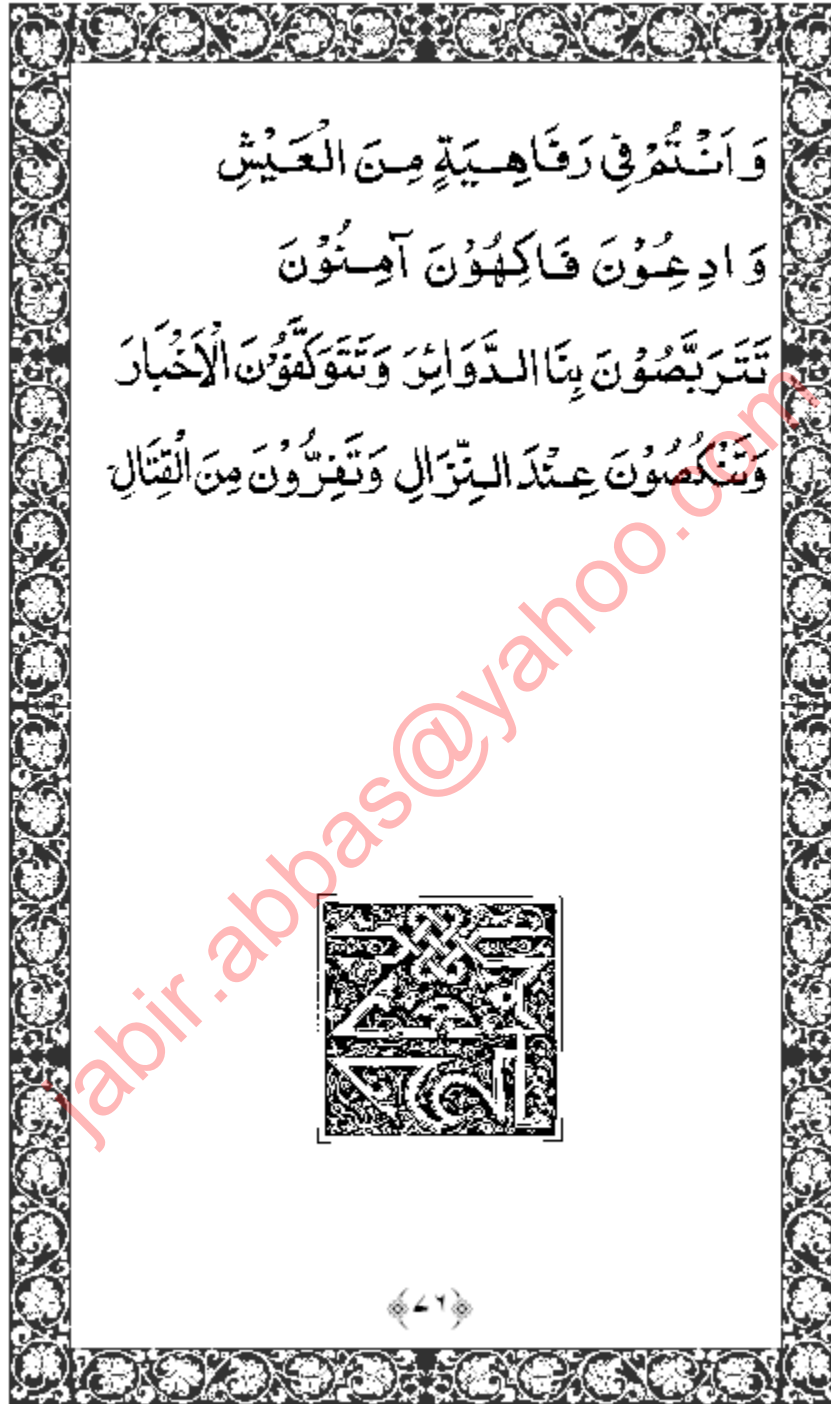 وَ اَنْتُمْ فِي رَفَاهِيَةٍ مِنَ الْعَيْشِ
وَادِعُوْنَ فَاكِهُوْنَ آمِنُوْنَ
تَتَرَبَّصُوْنَ بِنَا الدَّوَائِرَ وَتَتَوَكَّفُوْنَ الْاَخْبَارَ
وَتَنْكُصُوْنَ عِنْدَ النِّزَالِ وَتَفِرُّوْنَ مِنَ الْقِتَالِ
jabir.abbas@yahoo.com
﴿۷۶﴾